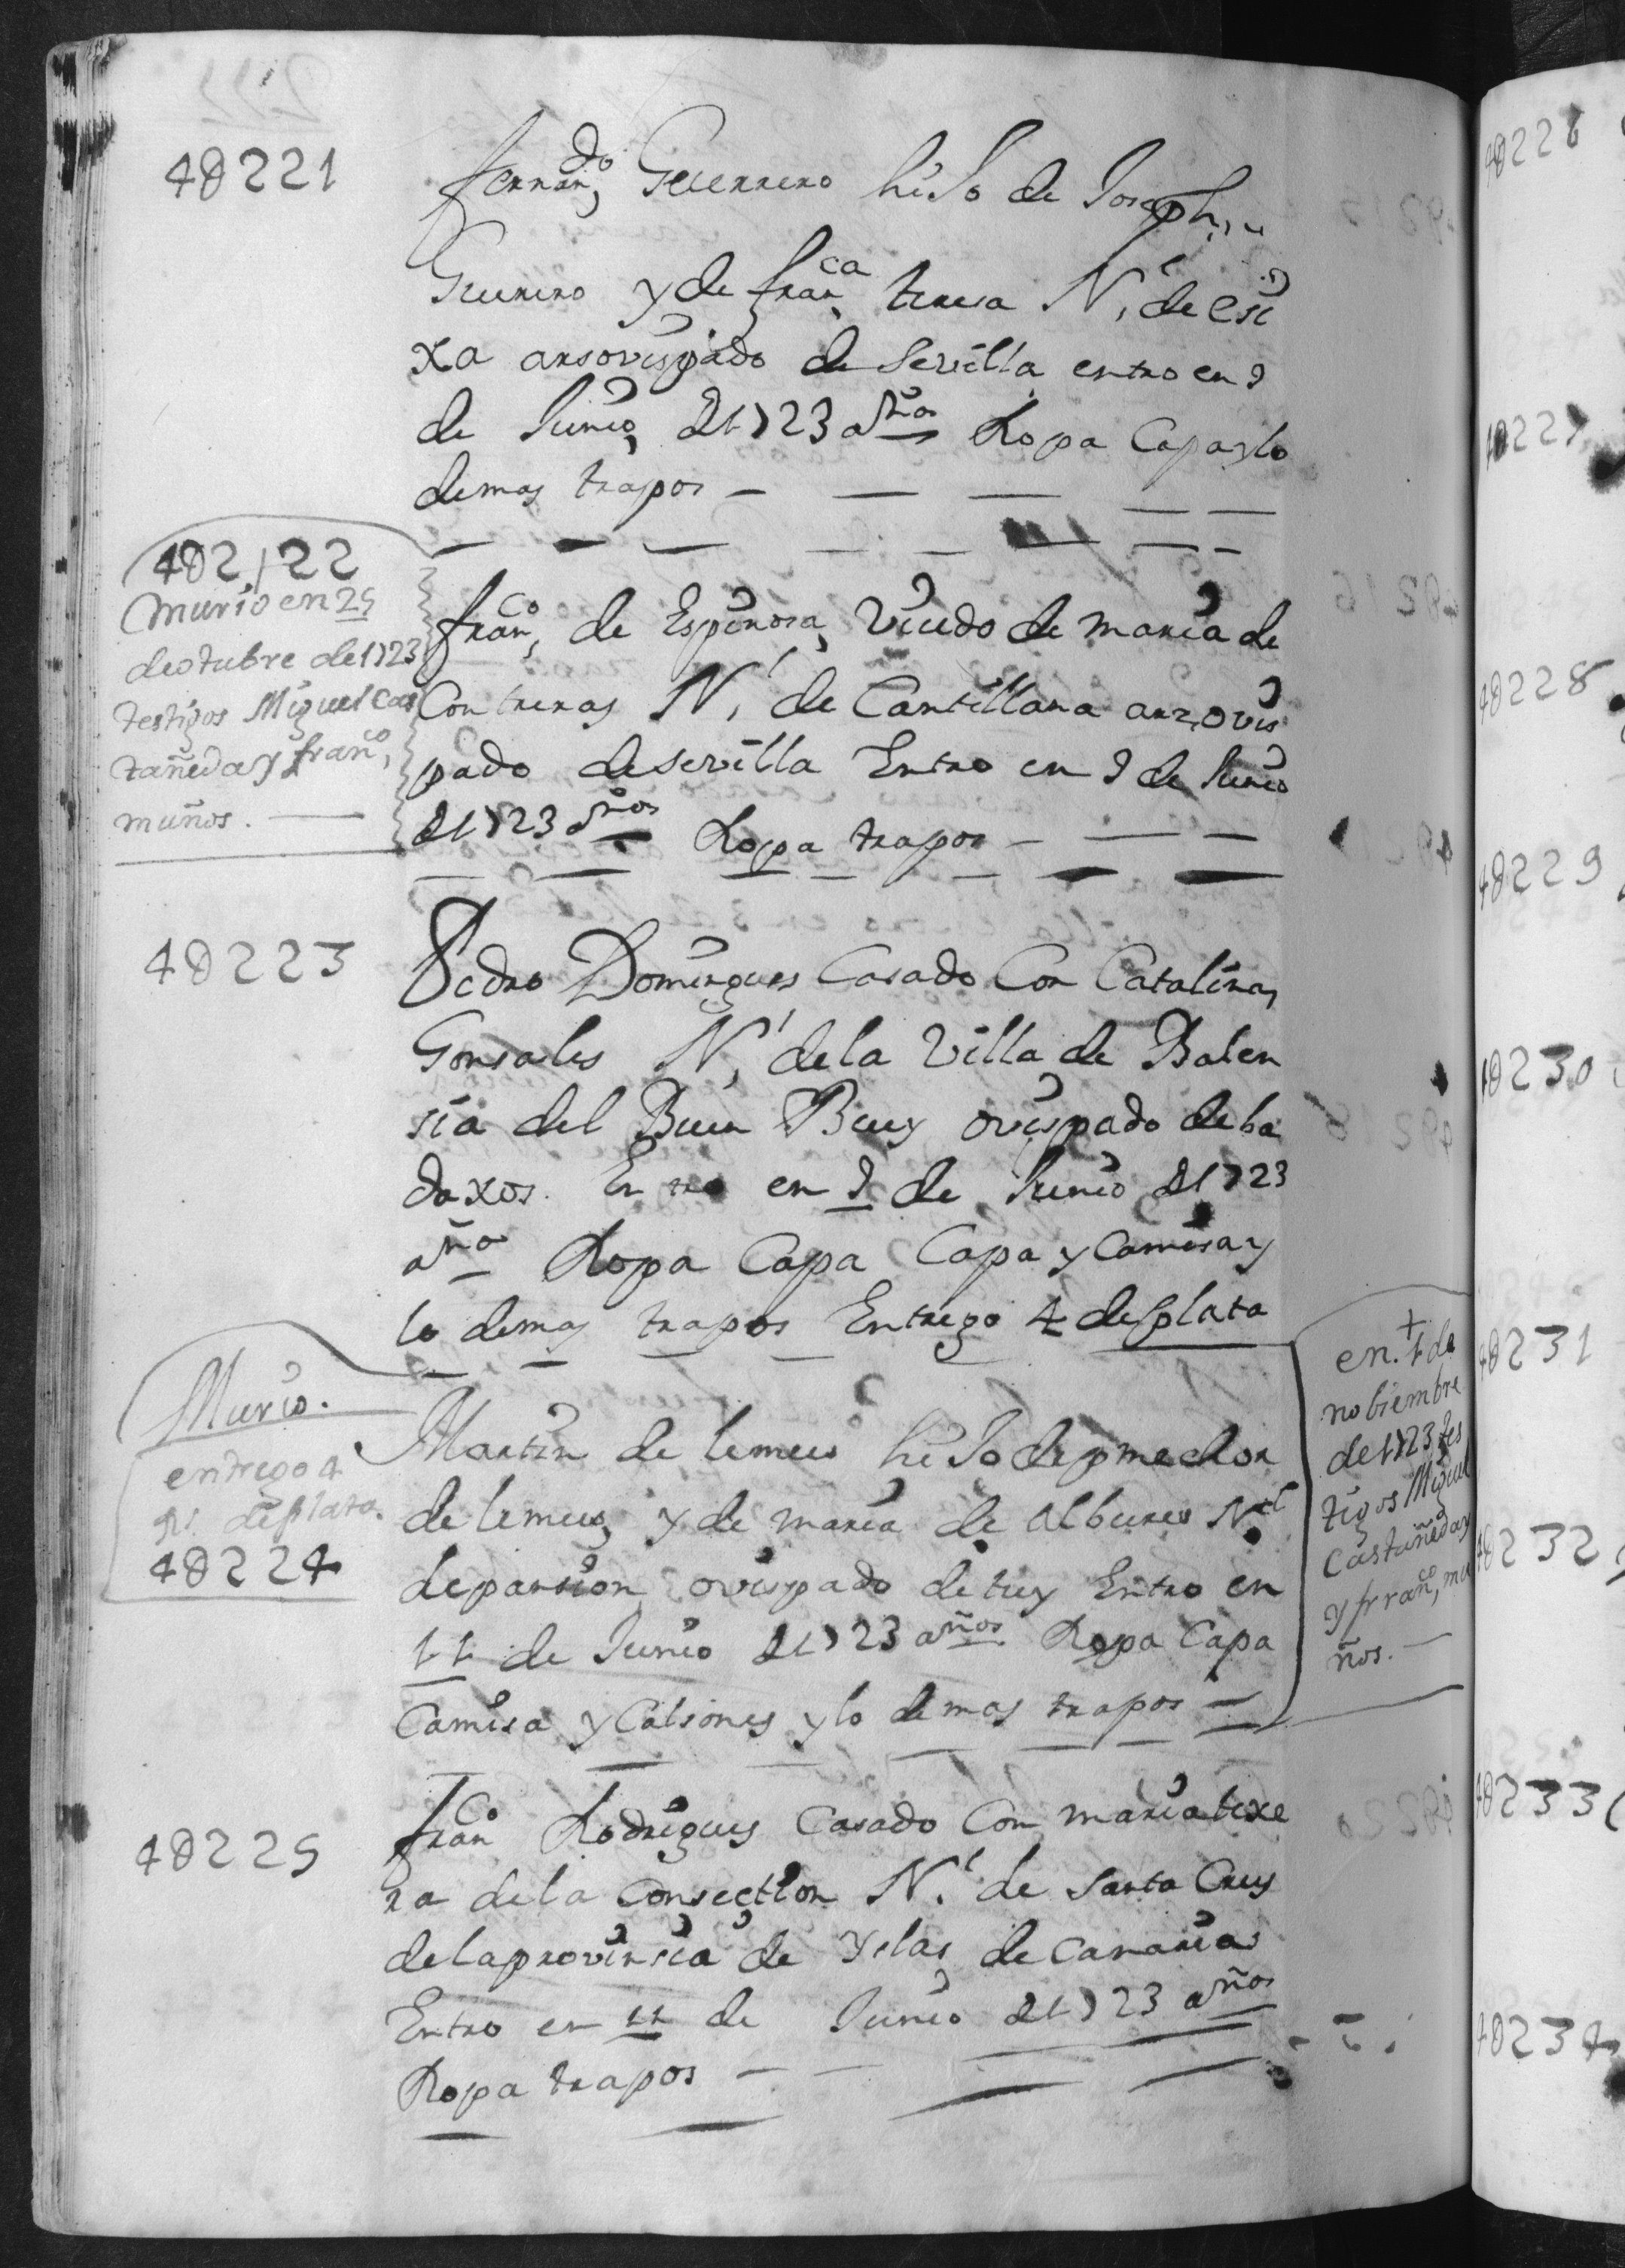 4D221
fernan,do Guerrero hiJo de Joseph,
Guerrero y de fran,ca teresa N,l de esi
xa arsovispado de Sevilla entro en 9
de Junio, D1723 años Ropa Capa y lo
demas trapos
4D2,22
murio en 25
de otubre de 1723
testigos Miguel cas
tañeda y fran,co
muños.
fran,co de Espinosa, Viudo de maria de
Contreras N,l de Cantillana arzovis
pado de sevilla Entro en 9 de Junio
D1723 años Ropa trapos
4D223
Pedro Domingues Casado Con Catalina,
Gonsales N,l de la Villa de Balen
sia del Buen Buey ovispado de ba
daxos. Entro en 9 de Junio D1723
años Ropa Capa Capa y Camisa y
lo demas trapos Entrego 4 de plata
Murio.
entrego 4
Rs. de plata.
4D224
Martin de lemus hiJo de, melchor
de lemus, y de maria de albures N.l
de parsion, ovispado de tuy Entro en
11 de Junio D1723 años Ropa Capa
Camisa y Calsones y lo demas trapos
+
en. 1 de
nobiembre
de 1723 tes
tigos Miguel
Castañeda y
y frran,co mu
ños.
4D225
fran.co Rodrigues Casado Con maria texe
ra de la Consection N.l de Santa Crus
de la provinsia de yslas de Canarias
Entro en 11 de Junio D1723 años
Ropa trapos
4D226
4D227
4D228
4D229
4D230
4D231
4D232
4D233
4D234